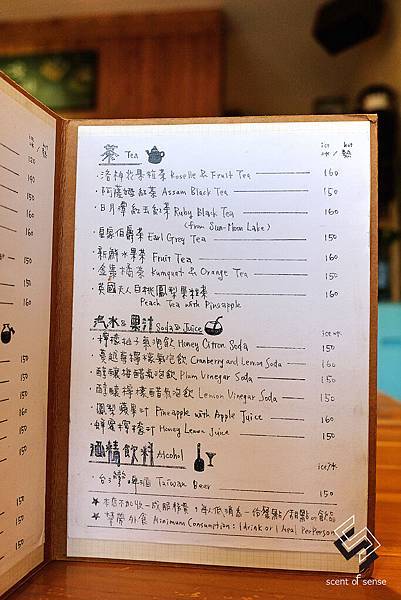 茶 Tea ice 冰 / hot 熱
・洛神花果粒茶 Roselle & Fruit Tea 160
・阿薩姆紅茶 Assam Black Tea 150
・日月潭紅玉紅茶 Ruby Black Tea 160
(from Sun-Moon Lake)
・皇家伯爵茶 Earl Grey Tea 150
・新鮮水果茶 Fruit Tea 160
・金桔橘茶 Kumquet & Orange Tea 150
・英國夫人白桃鳳梨果粒茶 160
Peach Tea with Pineapple
汽水& 果汁 Soda & Juice ice 冰
・檸檬柚子氣泡飲 Honey Citron Soda 150
・蔓越莓檸檬氣泡飲 Cranberry and Lemon Soda 160
・醇釀梅醋氣泡飲 Plum Vinegar Soda 150
・醇釀檸檬醋氣泡飲 Lemon Vinegar Soda 150
・鳳梨蘋果汁 Pineapple with Apple Juice 160
・蜂蜜檸檬汁 Honey Lemon Juice 150
酒精飲料 Alcohol ice/冰
・台灣啤酒 Taiwan Beer 150
★ 本店不加收一成服務費，每人低消為一份餐點/甜點or飲品
★ 禁帶外食 Minimum Consumption: 1 drink or 1 Meal Per Person
scent of sense